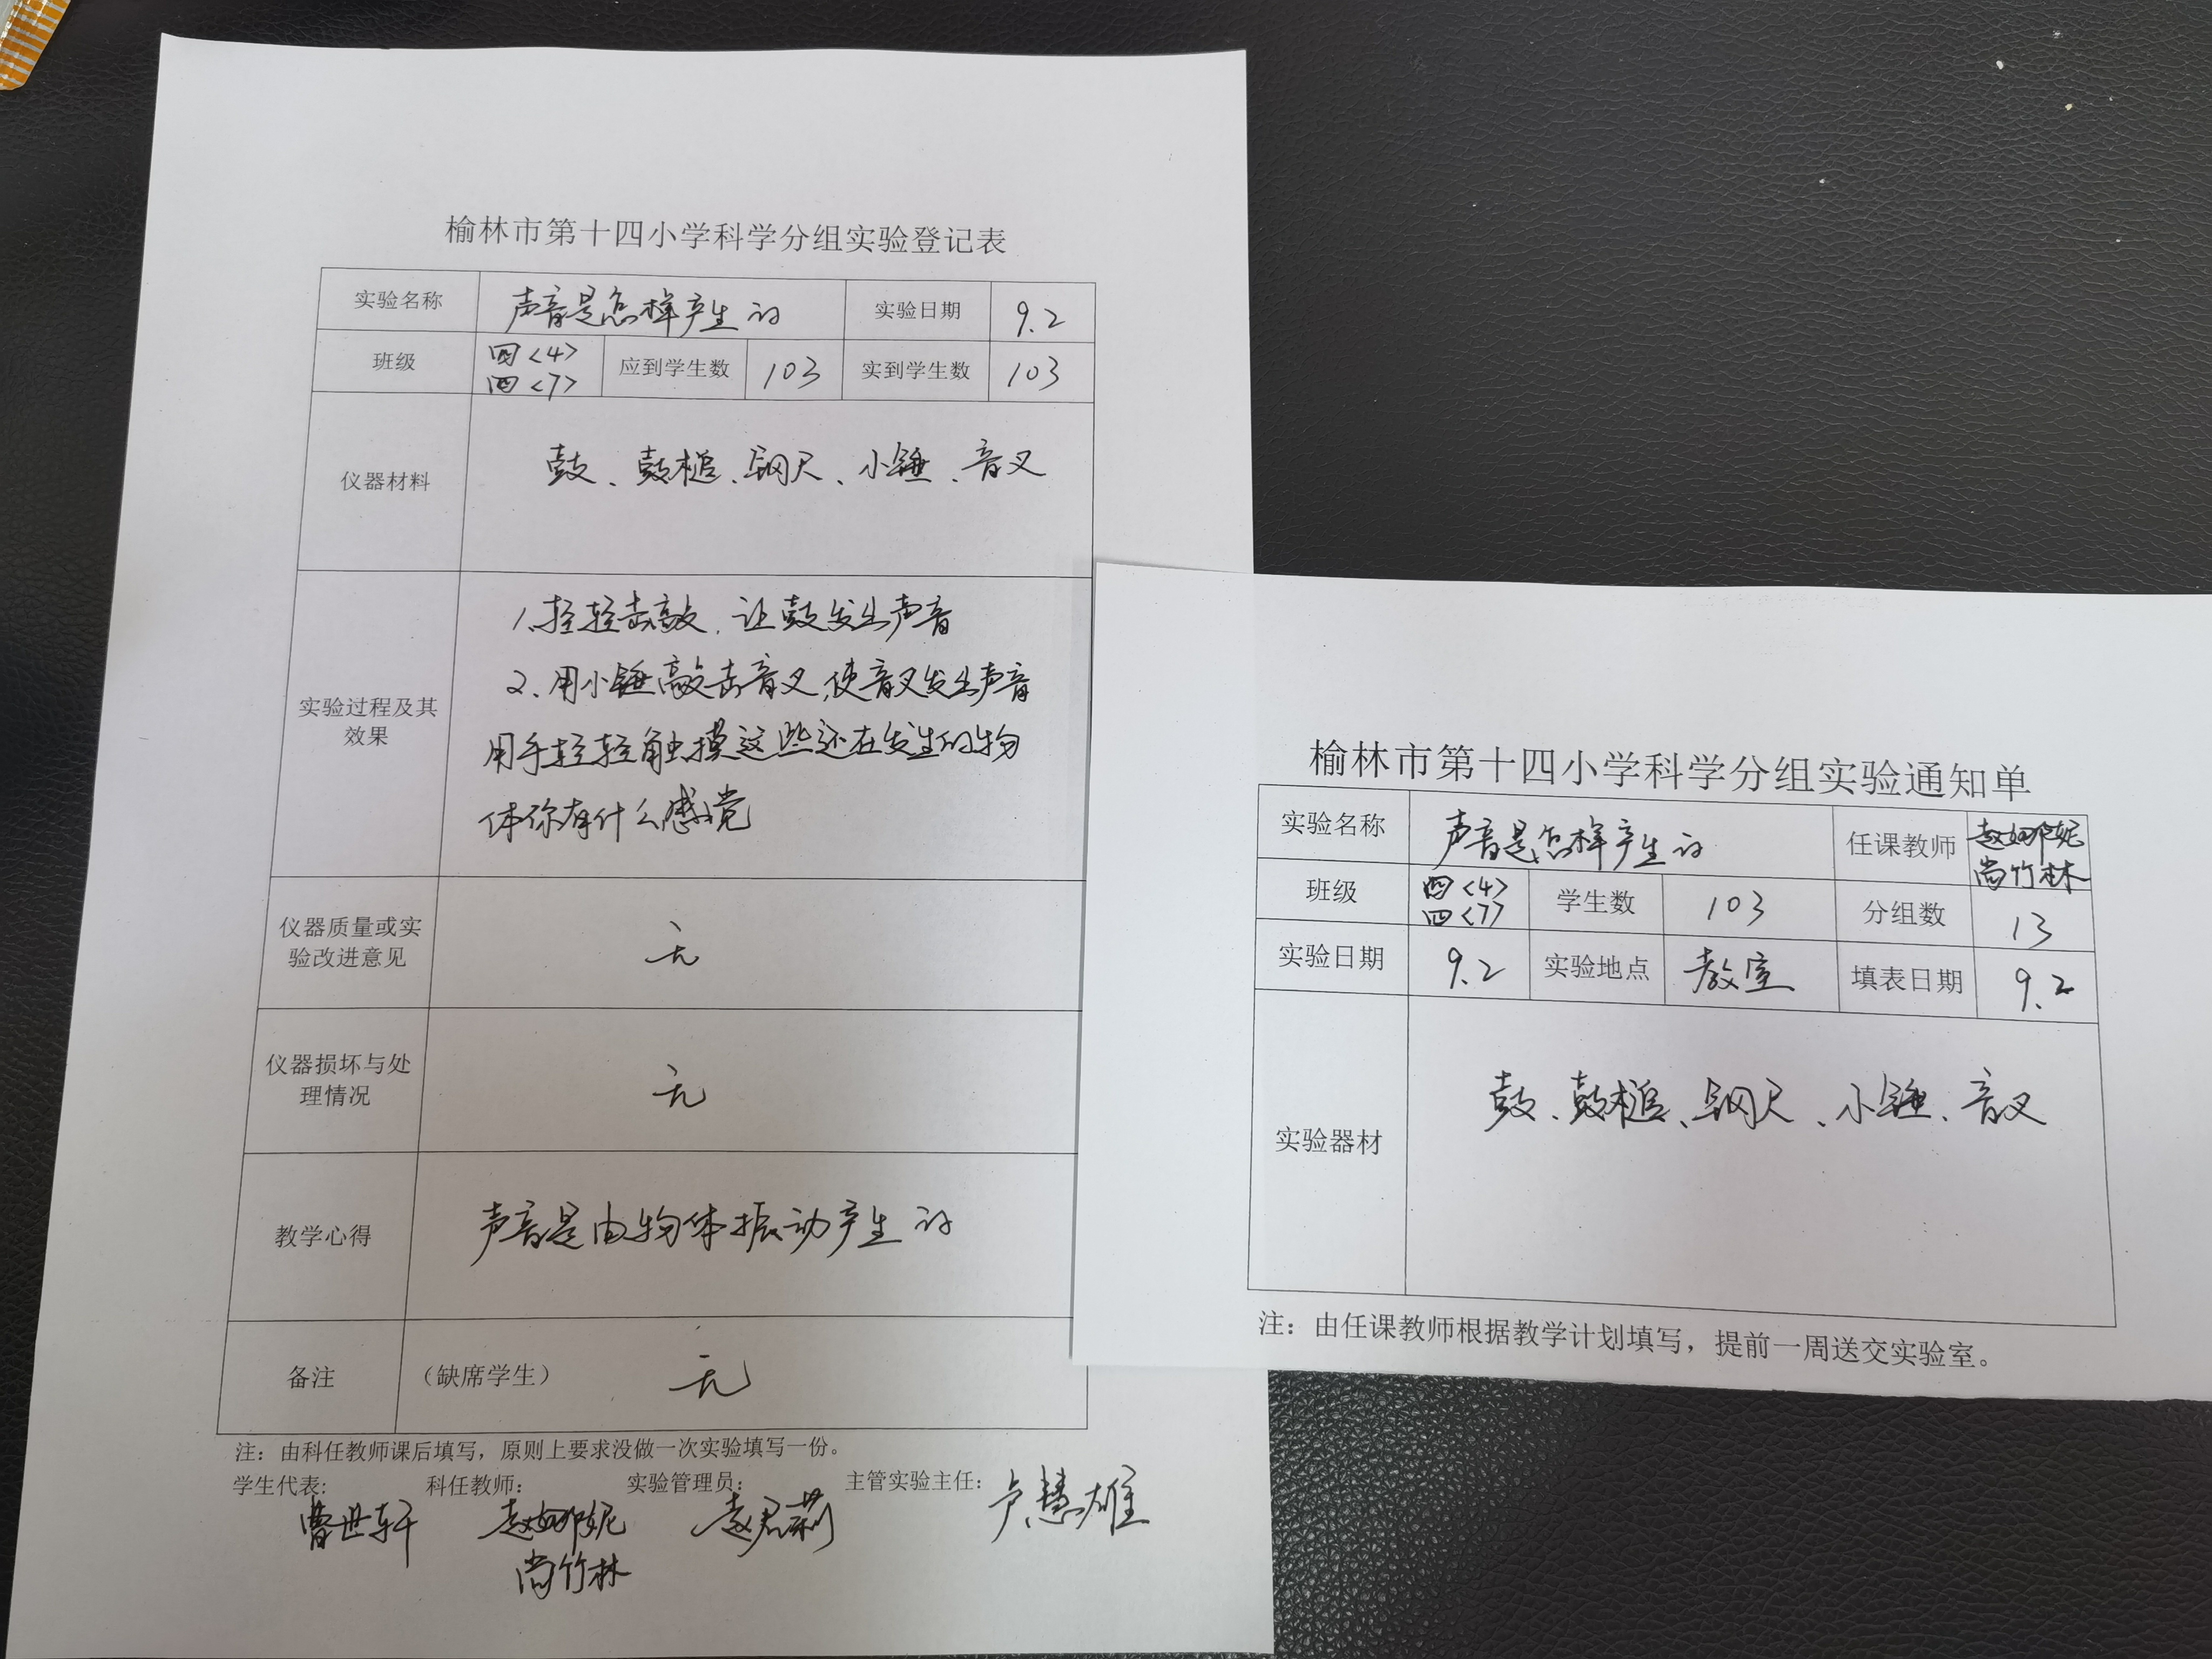 榆林市第十四小学科学分组实验登记表
实验名称 声音是怎样产生的 实验日期 9.2
班级 四<4> 四<7> 应到学生数 103 实到学生数 103
仪器材料 鼓、鼓槌、钢尺、小锤、音叉
1、轻轻击敲,让鼓发出声音
2、用小锤敲击音叉,使音叉发出声音
实验过程及其
效果
用手轻轻触摸这些还在发生的物
体你有什么感觉
仪器质量或实
验改进意见
无
仪器损坏与处
理情况
无
教学心得 声音是由物体振动产生的
备注 （缺席学生） 无
注：由科任教师课后填写，原则上要求没做一次实验填写一份。
学生代表: 科任教师: 实验管理员: 主管实验主任:
曹世轩 赵娜妮 赵君莉 卢慧雄
尚竹林
榆林市第十四小学科学分组实验通知单
实验名称 声音是怎样产生的 任课教师 赵娜妮 尚竹林
班级 四<4> 四<7> 学生数 103 分组数 13
实验日期 9.2 实验地点 教室 填表日期 9.2
实验器材 鼓、鼓槌、钢尺、小锤、音叉
注：由任课教师根据教学计划填写，提前一周送交实验室。